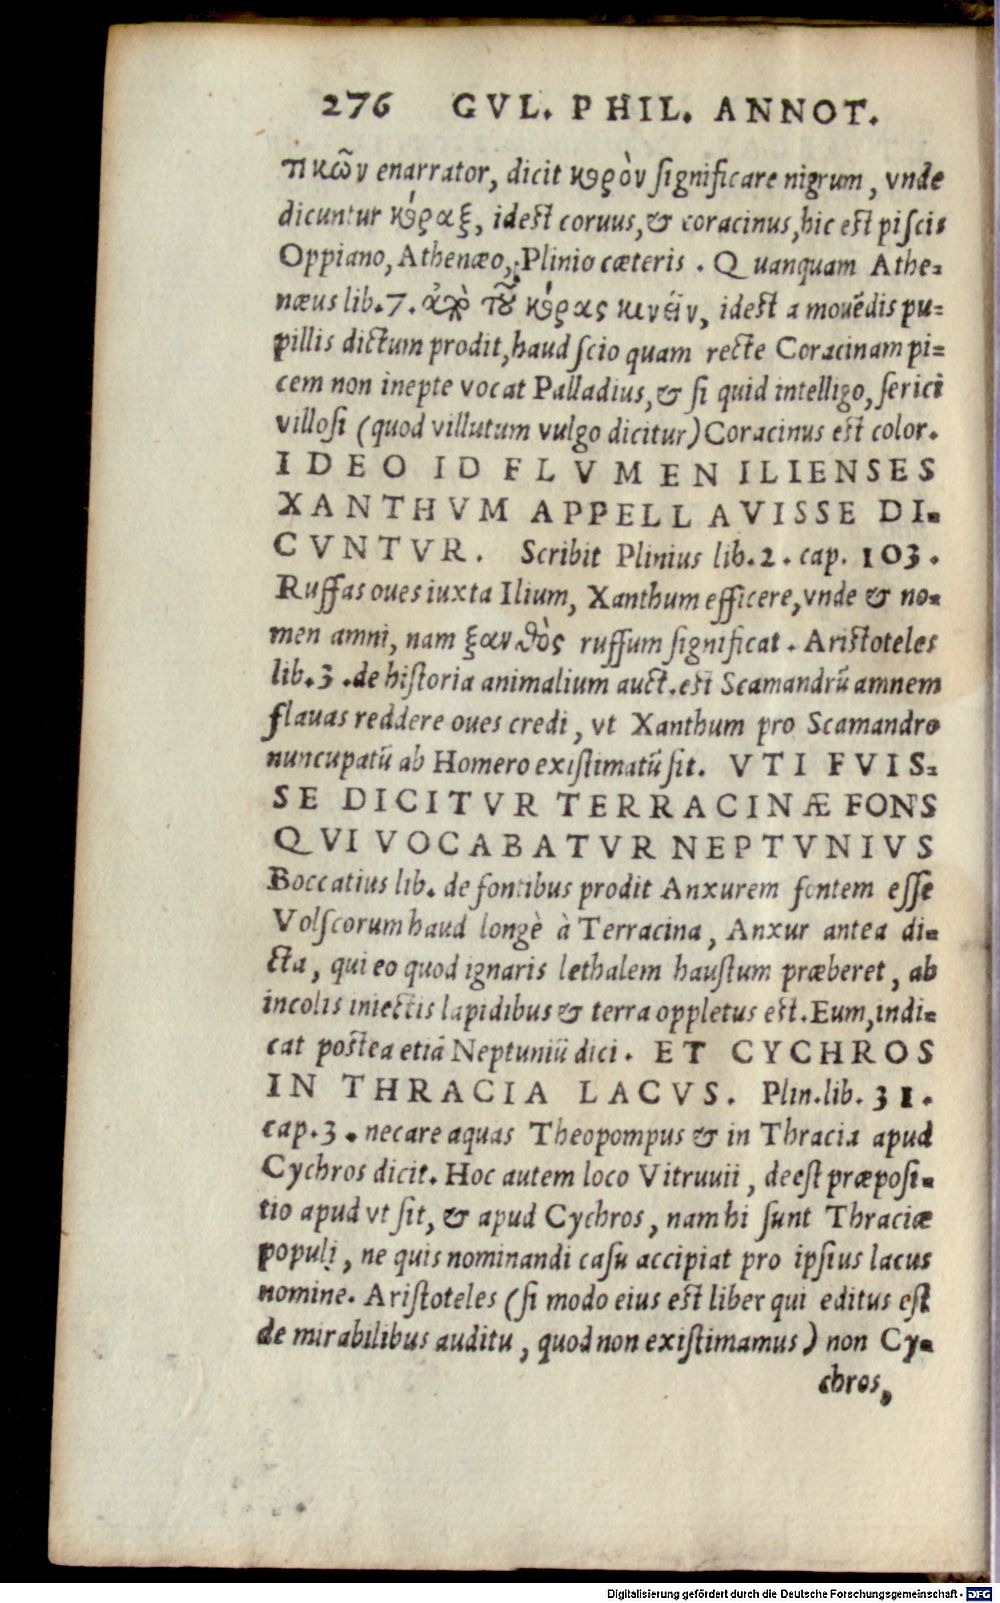 276 GVL. PHIL. ANNOT.
πικῶν enarrator, dicit κορὸν significare nigrum, vnde
dicuntur κόραξ, idest coruus, & coracinus, hic est piscis
Oppiano, Athenæo, Plinio cæteris. Quanquam Athe-
næus lib. 7. ἀπὸ τοῦ κόρας κινεῖν, idest a mouẽdis pu-
pillis dictum prodit, haud scio quam recte Coracinam pi-
cem non inepte vocat Palladius, & si quid intelligo, serici
villosi (quod villutum vulgo dicitur) Coracinus est color.
IDEO ID FLVMEN ILIENSES
XANTHVM APPELLAVISSE DI-
CVNTVR. Scribit Plinius lib. 2. cap. 103.
Ruffas oues iuxta Ilium, Xanthum efficere, vnde & no-
men amni, nam ξανθὸς ruffum significat. Aristoteles
lib. 3. de historia animalium auct. est Scamandrũ amnem
flauas reddere oues credi, vt Xanthum pro Scamandro
nuncupatũ ab Homero existimatũ sit. VTI FVIS-
SE DICITVR TERRACINÆ FONS
QVI VOCABATVR NEPTVNIVS
Boccatius lib. de fontibus prodit Anxurem fontem esse
Volscorum haud longè à Terracina, Anxur antea di-
cta, qui eo quod ignaris lethalem haustum præberet, ab
incolis iniectis lapidibus & terra oppletus est. Eum, indi-
cat postea etiã Neptuniũ dici. ET CYCHROS
IN THRACIA LACVS. Plin. lib. 31.
cap. 3. necare aquas Theopompus & in Thracia apud
Cychros dicit. Hoc autem loco Vitruuii, deest præposi-
tio apud vt sit, & apud Cychros, nam hi sunt Thraciæ
populi, ne quis nominandi casu accipiat pro ipsius lacus
nomine. Aristoteles (si modo eius est liber qui editus est
de mirabilibus auditu, quod non existimamus) non Cy-
chros,
Digitalisierung gefördert durch die Deutsche Forschungsgemeinschaft - DFG